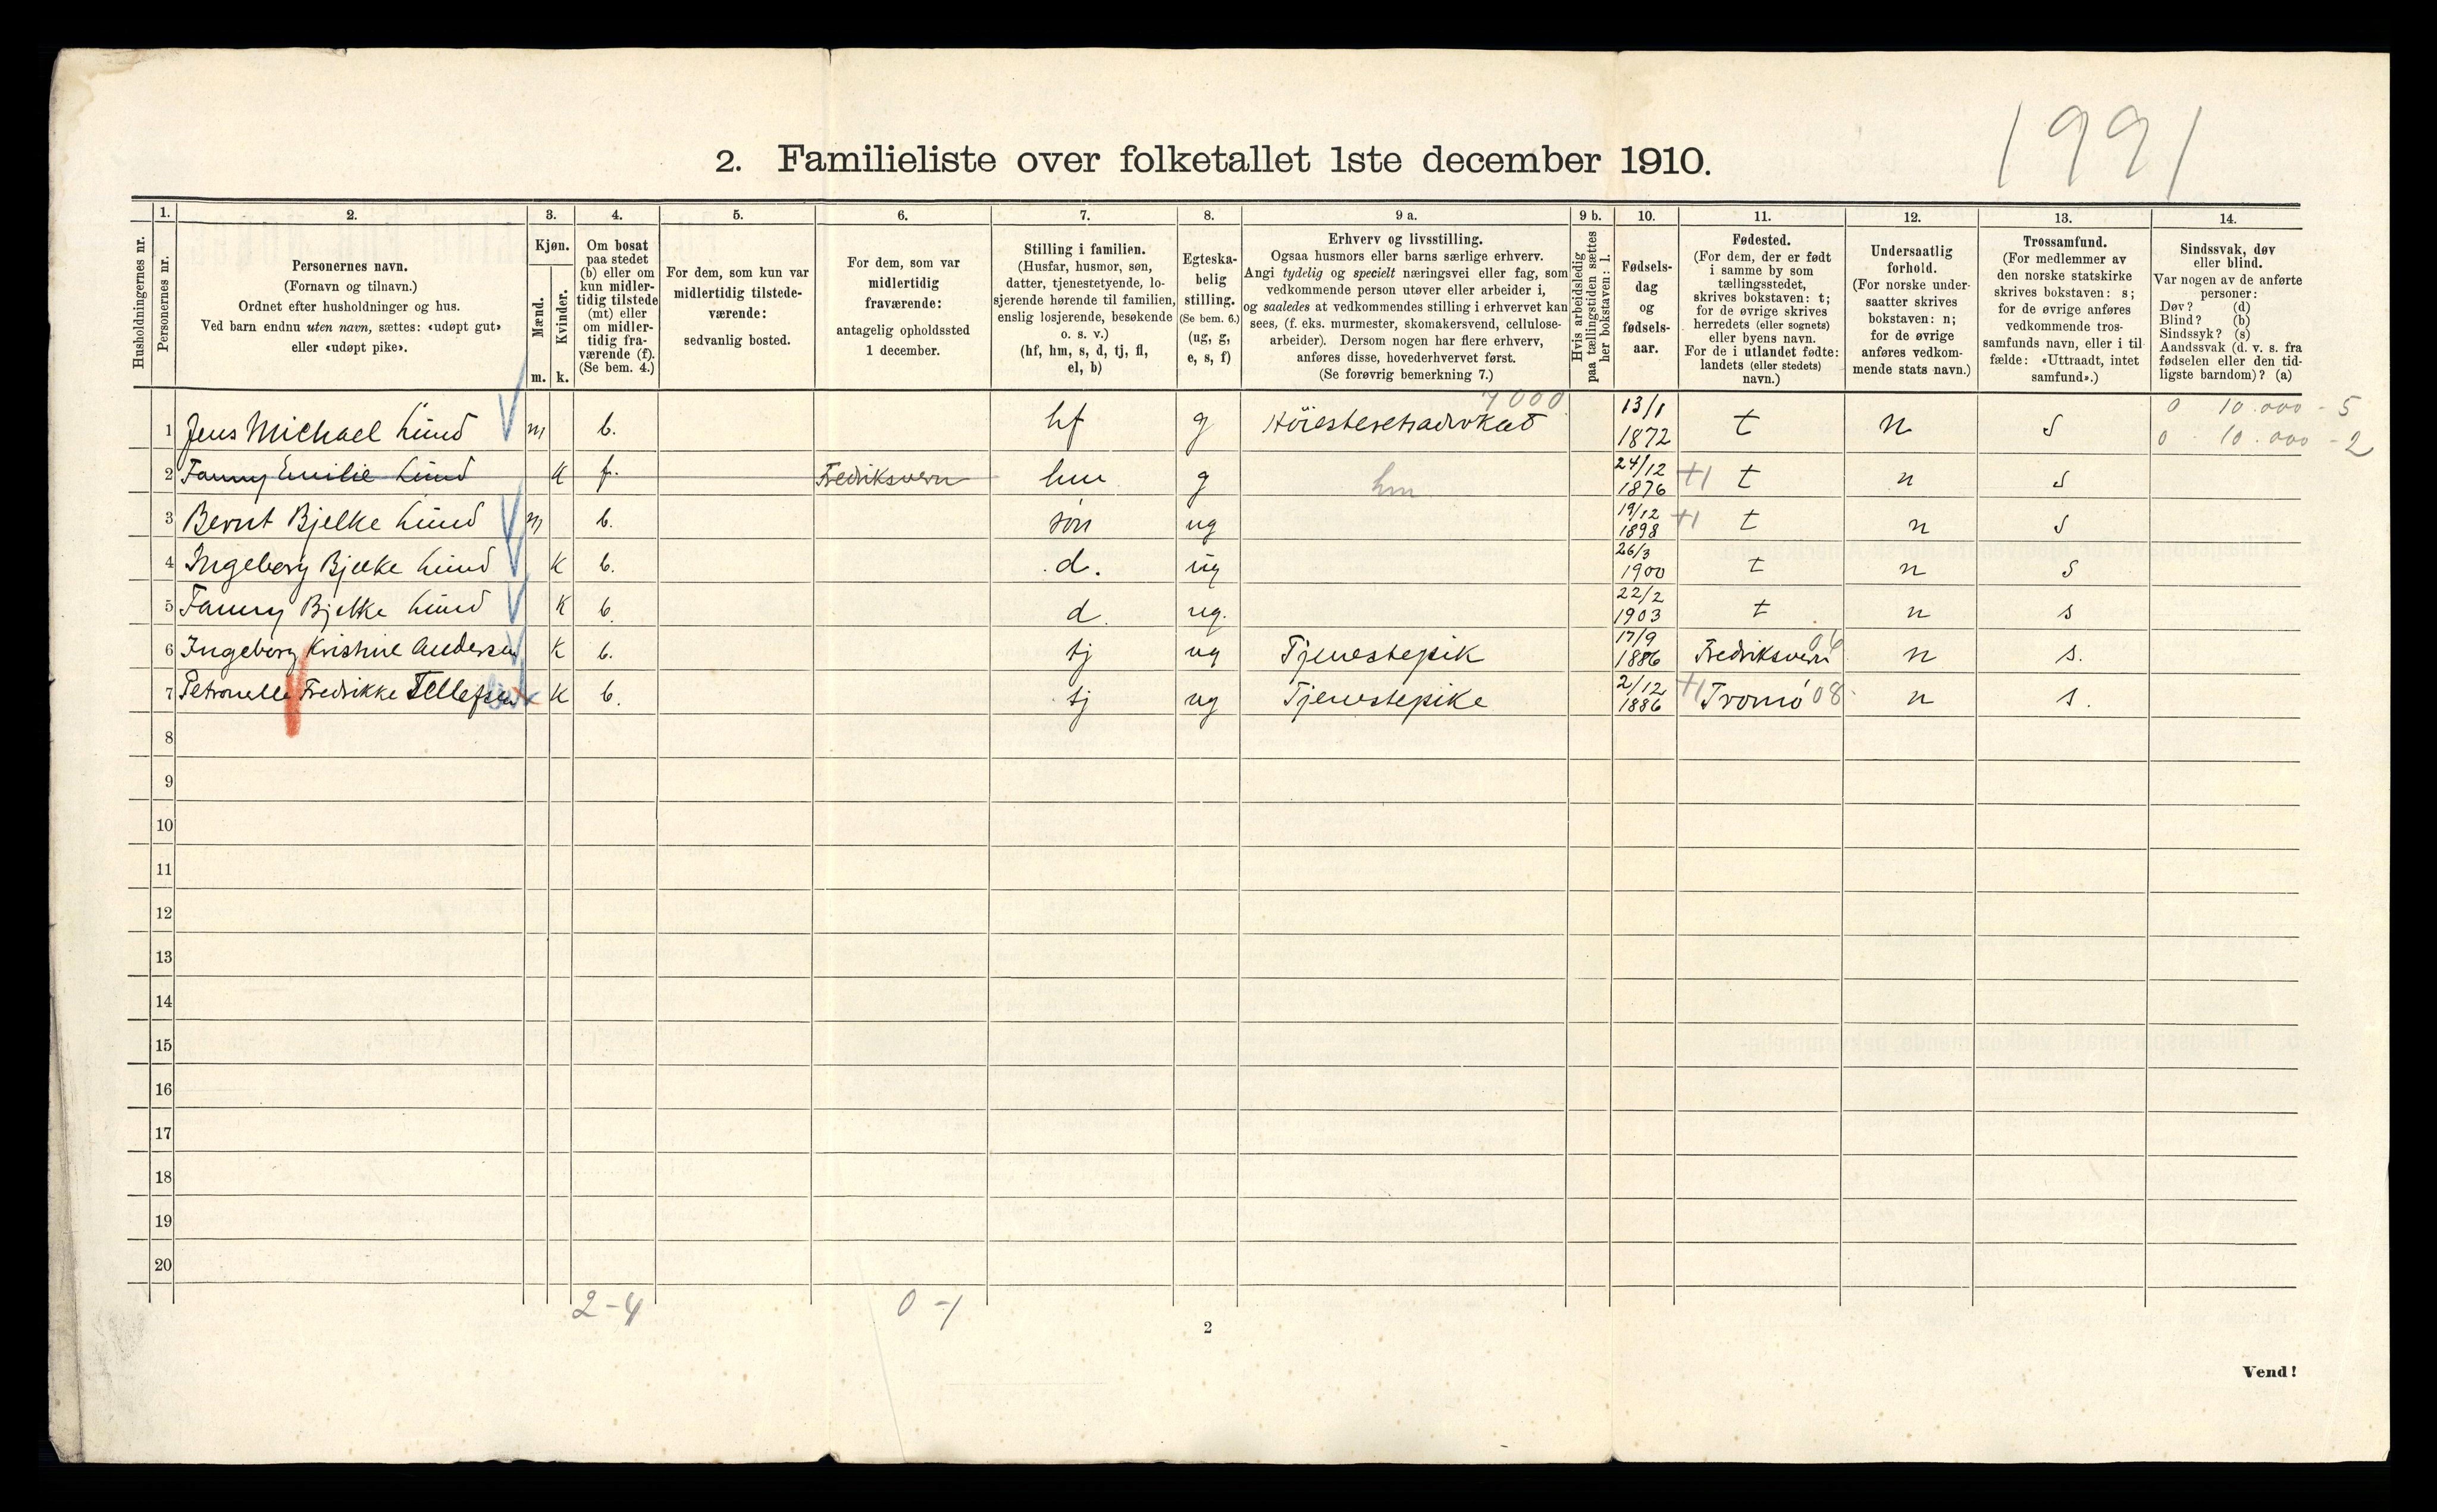 1991
2. Familieliste over folketallet 1ste december 1910.
Husholdningernes nr.
1.
Personernes nr.
2.
Personernes navn.
(Fornavn og tilnavn.)
Ordnet efter husholdninger og hus.
Ved barn endnu uten navn, sættes: «udøpt gut»
eller «udøpt pike».
3.
Kjøn.
Mænd.
m.
Kvinder.
k.
4.
Om bosat
paa stedet
(b) eller om
kun midler-
tidig tilstede
(mt) eller
om midler-
tidig fra-
værende (f).
(Se bem. 4.)
5.
For dem, som kun var
midlertidig tilstede-
værende:
sedvanlig bosted.
6.
For dem, som var
midlertidig
fraværende:
antagelig opholdssted
1 december.
7.
Stilling i familien.
(Husfar, husmor, søn,
datter, tjenestetyende, lo-
sjerende hørende til familien,
enslig losjerende, besøkende
o. s. v.)
(hf, hm, s, d, tj, fl,
el, b)
8.
Egteska-
belig
stilling.
(Se bem. 6.)
(ug, g,
e, s, f)
9 a.
Erhverv og livsstilling.
Ogsaa husmors eller barns særlige erhverv.
Angi tydelig og specielt næringsvei eller fag, som
vedkommende person utøver eller arbeider i,
og saaledes at vedkommendes stilling i erhvervet kan
sees, (f. eks. murmester, skomakersvend, cellulose-
arbeider). Dersom nogen har flere erhverv,
anføres disse, hovederhvervet først.
(Se forøvrig bemerkning 7.)
9 b.
Hvis arbeidsledig
paa tællingstiden sættes
her bokstaven: l.
10.
Fødsels-
dag
og
fødsels-
aar.
11.
Fødested.
(For dem, der er født
i samme by som
tællingsstedet,
skrives bokstaven: t;
for de øvrige skrives
herredets (eller sognets)
eller byens navn.
For de i utlandet fødte:
landets (eller stedets)
navn.)
12.
Undersaatlig
forhold.
(For norske under-
saatter skrives
bokstaven: n;
for de øvrige
anføres vedkom-
mende stats navn.)
13.
Trossamfund.
(For medlemmer av
den norske statskirke
skrives bokstaven: s;
for de øvrige anføres
vedkommende tros-
samfunds navn, eller i til-
fælde: «Uttraadt, intet
samfund».)
14.
Sindssvak, døv
eller blind.
Var nogen av de anførte
personer:
Døv? (d)
Blind? (b)
Sindssyk? (s)
Aandssvak (d. v. s. fra
fødselen eller den tid-
ligste barndom)? (a)
1 Jens Michael Lund m b. hf g 7000 Höiesteretsadvokat 13/1 1872 t n s 0 10.000 - 5
0 10.000 - 2
2 Fanny Emilie Lund k f. Fredriksvern hm g hm 24/12 1876 +1 t n s
3 Bernt Bjelke Lund m b. søn ug 19/12 1898 +1 t n s
4 Ingeborg Bjelke Lund k b. d. ug 26/3 1900 t n s
5 Fanny Bjelke Lund k b d. ug. 22/2 1903 t n s
6 Ingeborg Kristine Andersen k b. tj ug Tjenestepik 17/9 1886 Fredriksvern n s.
7 Petronelle Fredrikke Tellefsen k b. tj ug Tjenestepike 2/12 1886 +1 Tromö 08 n s.
8
9
10
11
12
13
14
15
16
17
18
19
20
2-4 0-1
2
Vend!